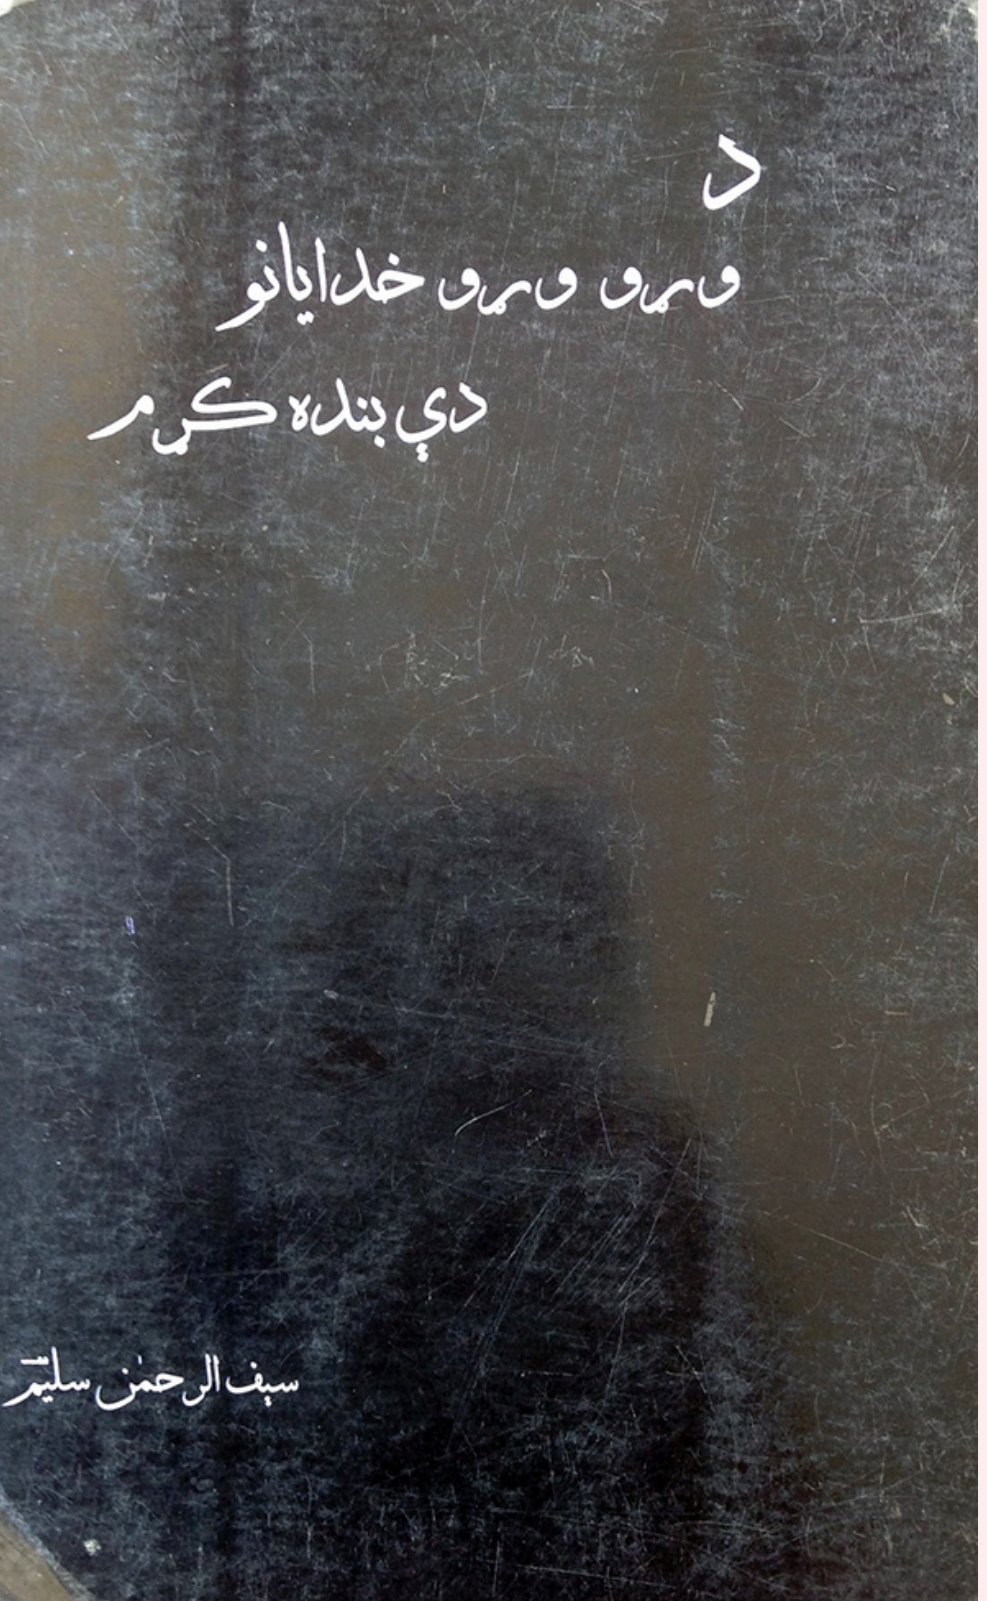 د
وړو وړو خدايانو
دې بنده کړم
سيف الرحمٰن سليم